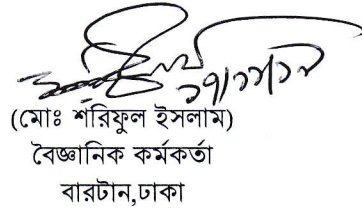 (মোঃ শরিফুল ইসলাম)
বৈজ্ঞানিক কর্মকর্তা
বারটান,ঢাকা